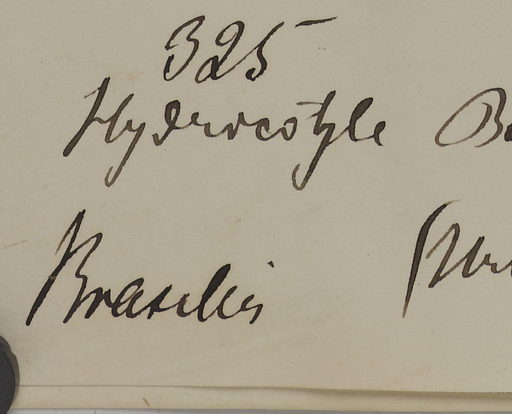 325
Hydrocotyle
Brasilia